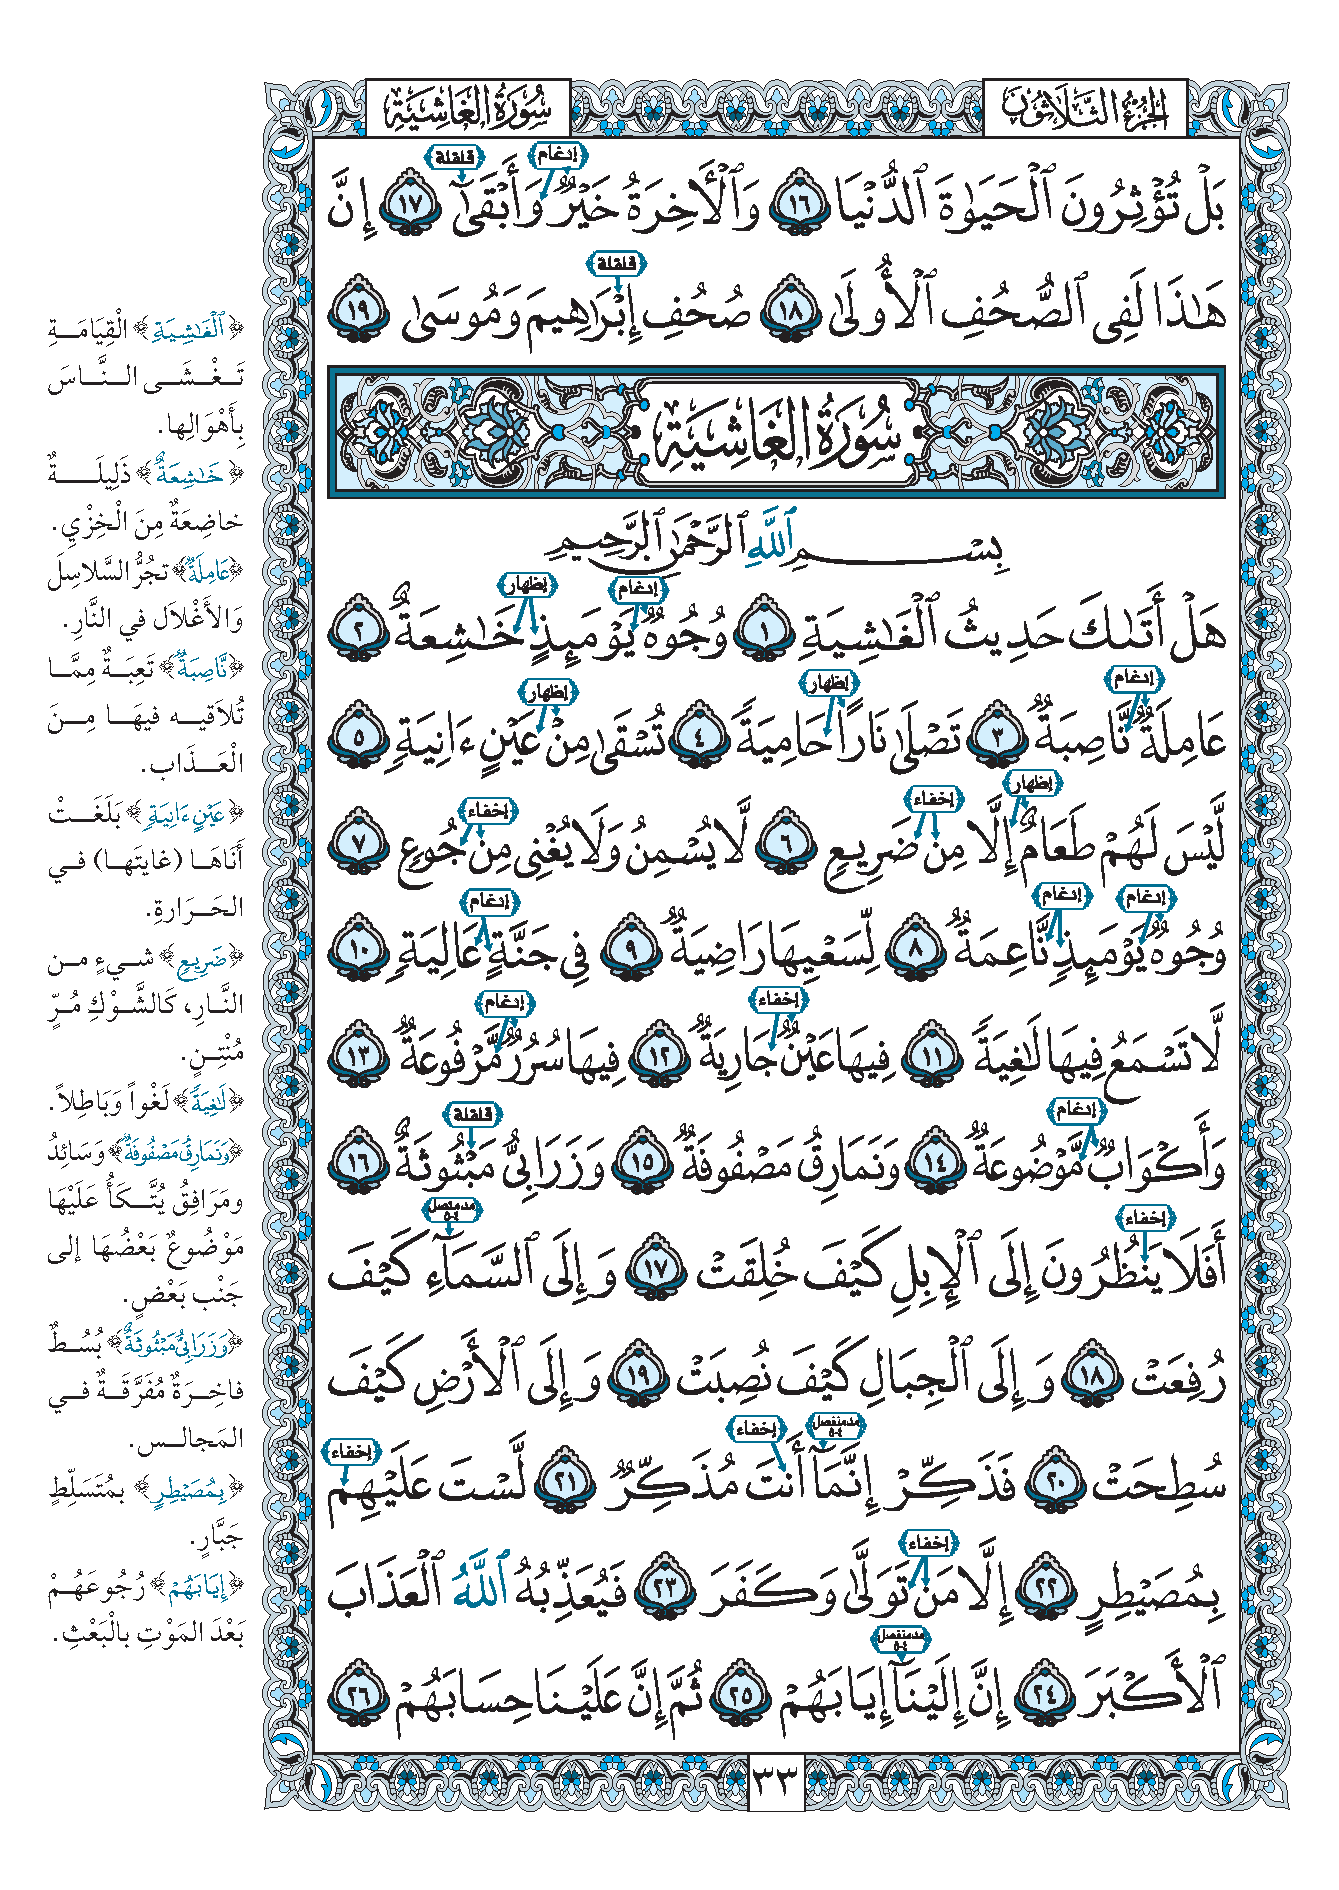 الجزء الثلاثون
سورة الغاشية
إدغام قلقلة
بَلْ تُؤْثِرُونَ ٱلْحَيَوٰةَ ٱلدُّنْيَا ١٦ وَٱلْأَخِرَةُ خَيْرٌ وَأَبْقَىٰٓ ١٧ إِنَّ
قلقلة
هَٰذَا لَفِى ٱلصُّحُفِ ٱلْأُولَىٰ ١٨ صُحُفِ إِبْرَٰهِيمَ وَمُوسَىٰ ١٩
سُورَةُ الغَاشِيَةِ
بِسْمِ ٱللَّهِ ٱلرَّحْمَٰنِ ٱلرَّحِيمِ
إدغام إظهار
هَلْ أَتَىٰكَ حَدِيثُ ٱلْغَٰشِيَةِ ١ وُجُوهٌ يَوْمَئِذٍ خَٰشِعَةٌ ٢
إدغام إظهار إظهار
عَامِلَةٌ نَّاصِبَةٌ ٣ تَصْلَىٰ نَارًا حَامِيَةً ٤ تُسْقَىٰ مِنْ عَيْنٍ ءَانِيَةٍ ٥
إظهار إخفاء إخفاء
لَّيْسَ لَهُمْ طَعَامٌ إِلَّا مِن ضَرِيعٍ ٦ لَّا يُسْمِنُ وَلَا يُغْنِى مِن جُوعٍ ٧
إدغام إدغام إدغام
وُجُوهٌ يَوْمَئِذٍ نَّاعِمَةٌ ٨ لِّسَعْيِهَا رَاضِيَةٌ ٩ فِى جَنَّةٍ عَالِيَةٍ ١٠
إخفاء إدغام
لَّا تَسْمَعُ فِيهَا لَٰغِيَةً ١١ فِيهَا عَيْنٌ جَارِيَةٌ ١٢ فِيهَا سُرُرٌ مَّرْفُوعَةٌ ١٣
إدغام قلقلة
وَأَكْوَابٌ مَّوْضُوعَةٌ ١٤ وَنَمَارِقُ مَصْفُوفَةٌ ١٥ وَزَرَابِىُّ مَبْثُوثَةٌ ١٦
إخفاء مد متصل ٤-٥
أَفَلَا يَنظُرُونَ إِلَى ٱلْإِبِلِ كَيْفَ خُلِقَتْ ١٧ وَإِلَى ٱلسَّمَآءِ كَيْفَ
رُفِعَتْ ١٨ وَإِلَى ٱلْجِبَالِ كَيْفَ نُصِبَتْ ١٩ وَإِلَى ٱلْأَرْضِ كَيْفَ
مد منفصل ٤-٥ إخفاء إخفاء
سُطِحَتْ ٢٠ فَذَكِّرْ إِنَّمَآ أَنتَ مُذَكِّرٌ ٢١ لَّسْتَ عَلَيْهِم
إخفاء
بِمُصَيْطِرٍ ٢٢ إِلَّا مَن تَوَلَّىٰ وَكَفَرَ ٢٣ فَيُعَذِّبُهُ ٱللَّهُ ٱلْعَذَابَ
مد منفصل ٤-٥
ٱلْأَكْبَرَ ٢٤ إِنَّ إِلَيْنَآ إِيَابَهُمْ ٢٥ ثُمَّ إِنَّ عَلَيْنَا حِسَابَهُمْ ٢٦
٣٣
﴿ٱلْغَٰشِيَةِ﴾ الْقِيَامَةِ
تَغْشَى النَّاسَ
بِأَهْوَالِها.
﴿خَٰشِعَةٌ﴾ ذَلِيلَةٌ
خاضِعَةٌ مِنَ الْخِزْيِ.
﴿عَامِلَةٌ﴾ تَجُرُّ السَّلاسِلَ
وَالأَغْلَالَ في النَّارِ.
﴿نَّاصِبَةٌ﴾ تَعِبَةٌ مِمَّا
تُلَاقيه فيهَا مِنَ
الْعَذَاب.
﴿عَيْنٍ ءَانِيَةٍ﴾ بَلَغَتْ
أَنَاهَا (غايتَها) في
الحَرَارةِ.
﴿ضَرِيعٍ﴾ شيءٍ من
النَّارِ، كَالشَّوْكِ مُرٍّ
مُنْتِنٍ.
﴿لَٰغِيَةً﴾ لَغْواً وَبَاطِلاً.
﴿وَنَمَارِقُ مَصْفُوفَةٌ﴾ وَسَائِدُ
ومَرَافِقُ يُتَّكَأُ عَلَيْهَا
مَوْضُوعٌ بَعْضُهَا إلى
جَنْبِ بَعْضٍ.
﴿وَزَرَابِىُّ مَبْثُوثَةٌ﴾ بُسُطٌ
فاخِرَةٌ مُفَرَّقَةٌ في
المَجالس.
﴿بِمُصَيْطِرٍ﴾ بمُتَسَلِّطٍ
جَبَّارٍ.
﴿إِيَابَهُمْ﴾ رُجُوعَهُمْ
بَعْدَ المَوْتِ بالْبَعْثِ.